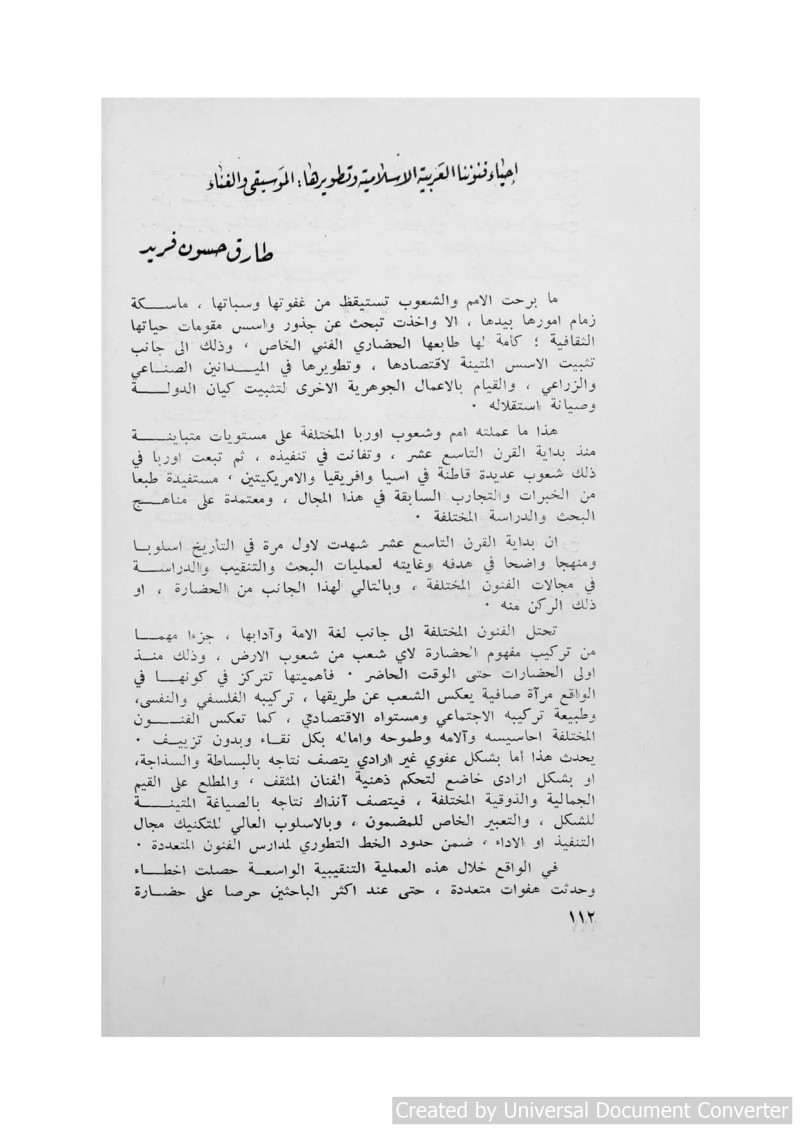 إحياء فنوننا العربية الاسلامية وتطويرها: الموسيقى والغناء
طارق حسون فريد
ما برحت الامم والشعوب تستيقظ من غفوتها وسباتها ، ماسكة
زمام امورها بيدها ، الا واخذت تبحث عن جذور واسس مقومات حياتها
الثقافية ؛ كامة لها طابعها الحضاري الفني الخاص ، وذلك الى جانب
تثبيت الاسس المتينة لاقتصادها ، وتطويرها في الميدانين الصناعي
والزراعي ، والقيام بالاعمال الجوهرية الاخرى لتثبيت كيان الدولة
وصيانة استقلاله ·
هذا ما عملته امم وشعوب اوربا المختلفة على مستويات متباينة
منذ بداية القرن التاسع عشر ، وتفانت في تنفيذه ، ثم تبعت اوربا في
ذلك شعوب عديدة قاطنة في اسيا وافريقيا والامريكيتين ، مستفيدة طبعا
من الخبرات والتجارب السابقة في هذا المجال ، ومعتمدة على مناهج
البحث والدراسة المختلفة ·
ان بداية القرن التاسع عشر شهدت لاول مرة في التأريخ اسلوبا
ومنهجا واضحا في هدفه وغايته لعمليات البحث والتنقيب والدراسة
في مجالات الفنون المختلفة ، وبالتالي لهذا الجانب من الحضارة ، او
ذلك الركن منه ·
تحتل الفنون المختلفة الى جانب لغة الامة وآدابها ، جزءا مهما
من تركيب مفهوم الحضارة لاي شعب من شعوب الارض ، وذلك منذ
اولى الحضارات حتى الوقت الحاضر · فأهميتها تتركز في كونها في
الواقع مرآة صافية يعكس الشعب عن طريقها ، تركيبه الفلسفي والنفسي،
وطبيعة تركيبه الاجتماعي ومستواه الاقتصادي ، كما تعكس الفنون
المختلفة احاسيسه وآلامه وطموحه واماله بكل نقاء وبدون تزييف ·
يحدث هذا أما بشكل عفوي غير ارادي يتصف نتاجه بالبساطة والسذاجة،
او بشكل ارادى خاضع لتحكم ذهنية الفنان المثقف ، والمطلع على القيم
الجمالية والذوقية المختلفة ، فيتصف آنذاك نتاجه بالصياغة المتينة
للشكل ، والتعبير الخاص للمضمون ، وبالاسلوب العالي للتكنيك مجال
التنفيذ او الاداء ، ضمن حدود الخط التطوري لمدارس الفنون المتعددة ·
في الواقع خلال هذه العملية التنقيبية الواسعة حصلت اخطاء
وحدثت هفوات متعددة ، حتى عند اكثر الباحثين حرصا على حضارة
١١٢
Created by Universal Document Converter